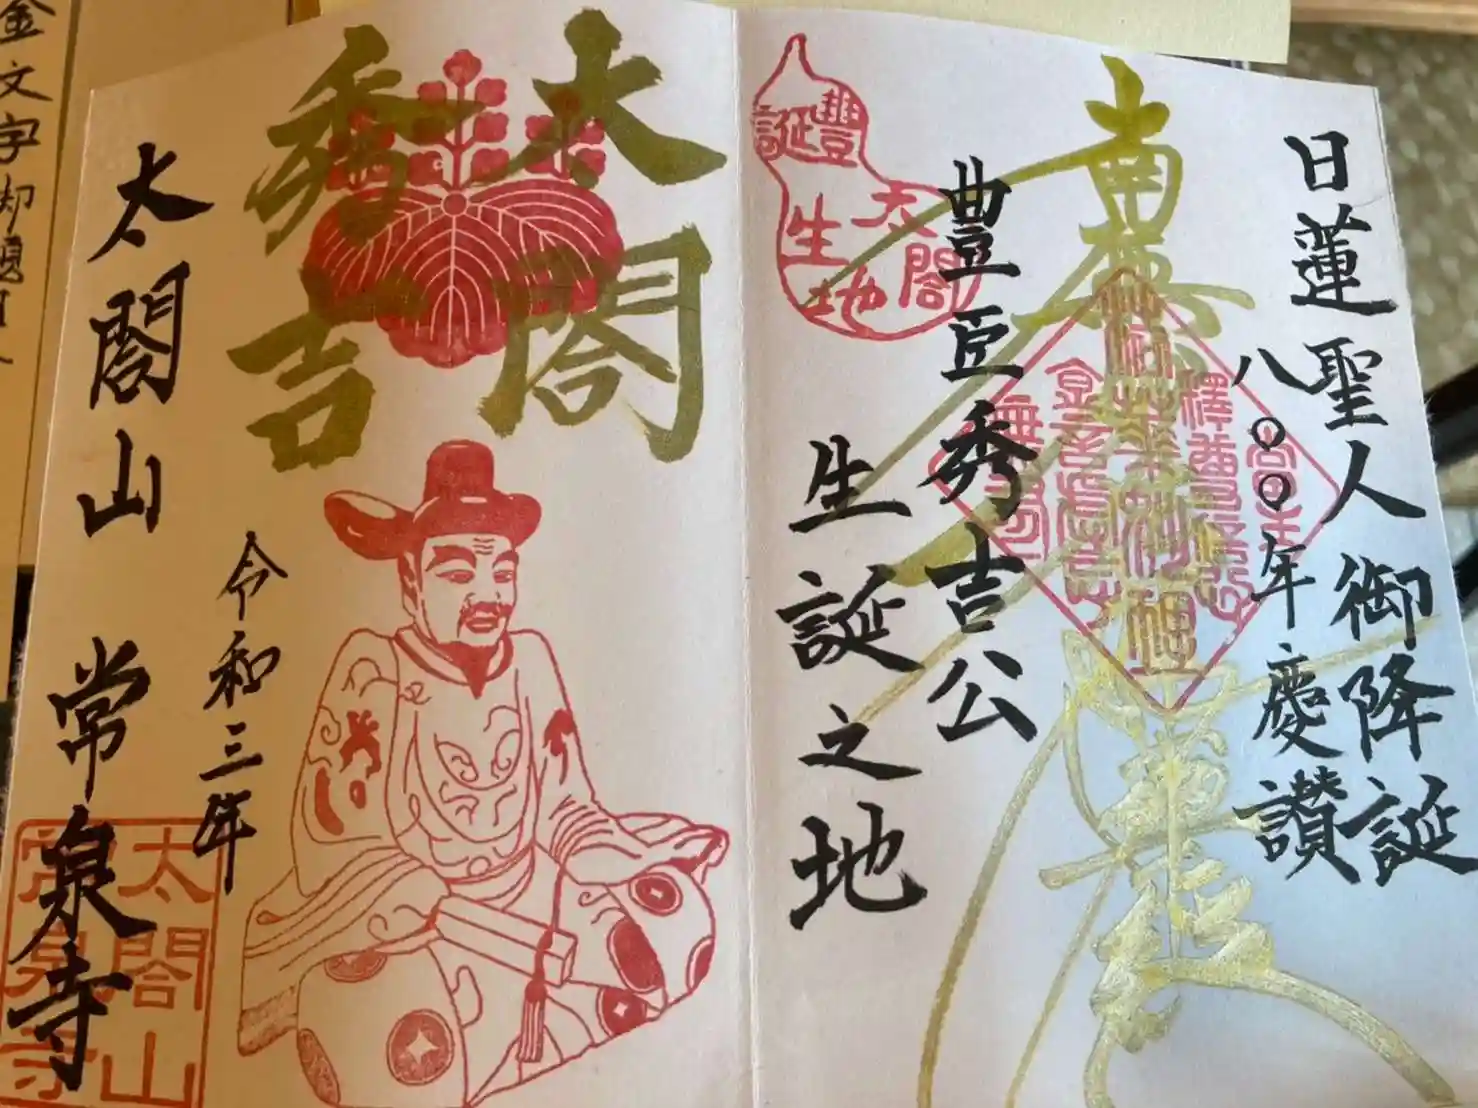 日蓮聖人御降誕
八〇〇年慶讃
南無妙法蓮華経
豊臣秀吉公
生誕之地
豐太閤
誕生地
太閤
秀吉
令和三年
太閤山 常泉寺
太閤山
常泉寺
金文字御題目